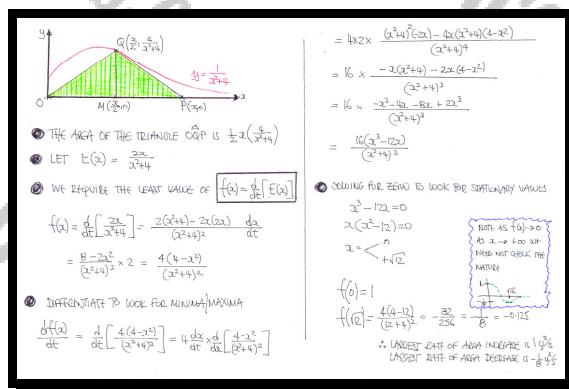 y
Q(x/2, 4/(x²+4))
y = 1/(x²+4)
O
M(x/2,0)
P(x,0)
x
THE AREA OF THE TRIANGLE OQP IS ½x(4/(x²+4))
LET E(x) = 2x/(x²+4)
WE REQUIRE THE LEAST VALUE OF f(x) = d/dt[E(x)]
f(x) = d/dt[2x/(x²+4)] = (2(x²+4) - 2x(2x))/(x²+4)² dx/dt
= (8-2x²)/(x²+4)² × 2 = 4(4-x²)/(x²+4)²
DIFFERENTIATE TO LOOK FOR MINIMA/MAXIMA
df(x)/dt = d/dt[4(4-x²)/(x²+4)²] = 4 dx/dt × d/dx[(4-x²)/(x²+4)²]
= 4×2× ((x²+4)²(-2x) - 4x(x²+4)(4-x²))/(x²+4)⁴
= 16 × (-x(x²+4) - 2x(4-x²))/(x²+4)³
= 16 × (-x³-4x-8x+2x³)/(x²+4)³
= 16(x³-12x)/(x²+4)³
SOLVING FOR ZERO TO LOOK FOR STATIONARY VALUES
x³-12x=0
x(x²-12)=0
x = < 0
+√12
NOTE AS f(x)→0
AS x → +∞ WE
NEED NOT CHECK THE
NATURE
√12
f(0)=1
f(√12) = 4(4-12)/(12+4)² = -32/256 = -1/8 = -0.125
∴ LARGEST RATE OF AREA INCREASE IS 1 u²/s
LARGEST RATE OF AREA DECREASE IS -⅛ u²/s